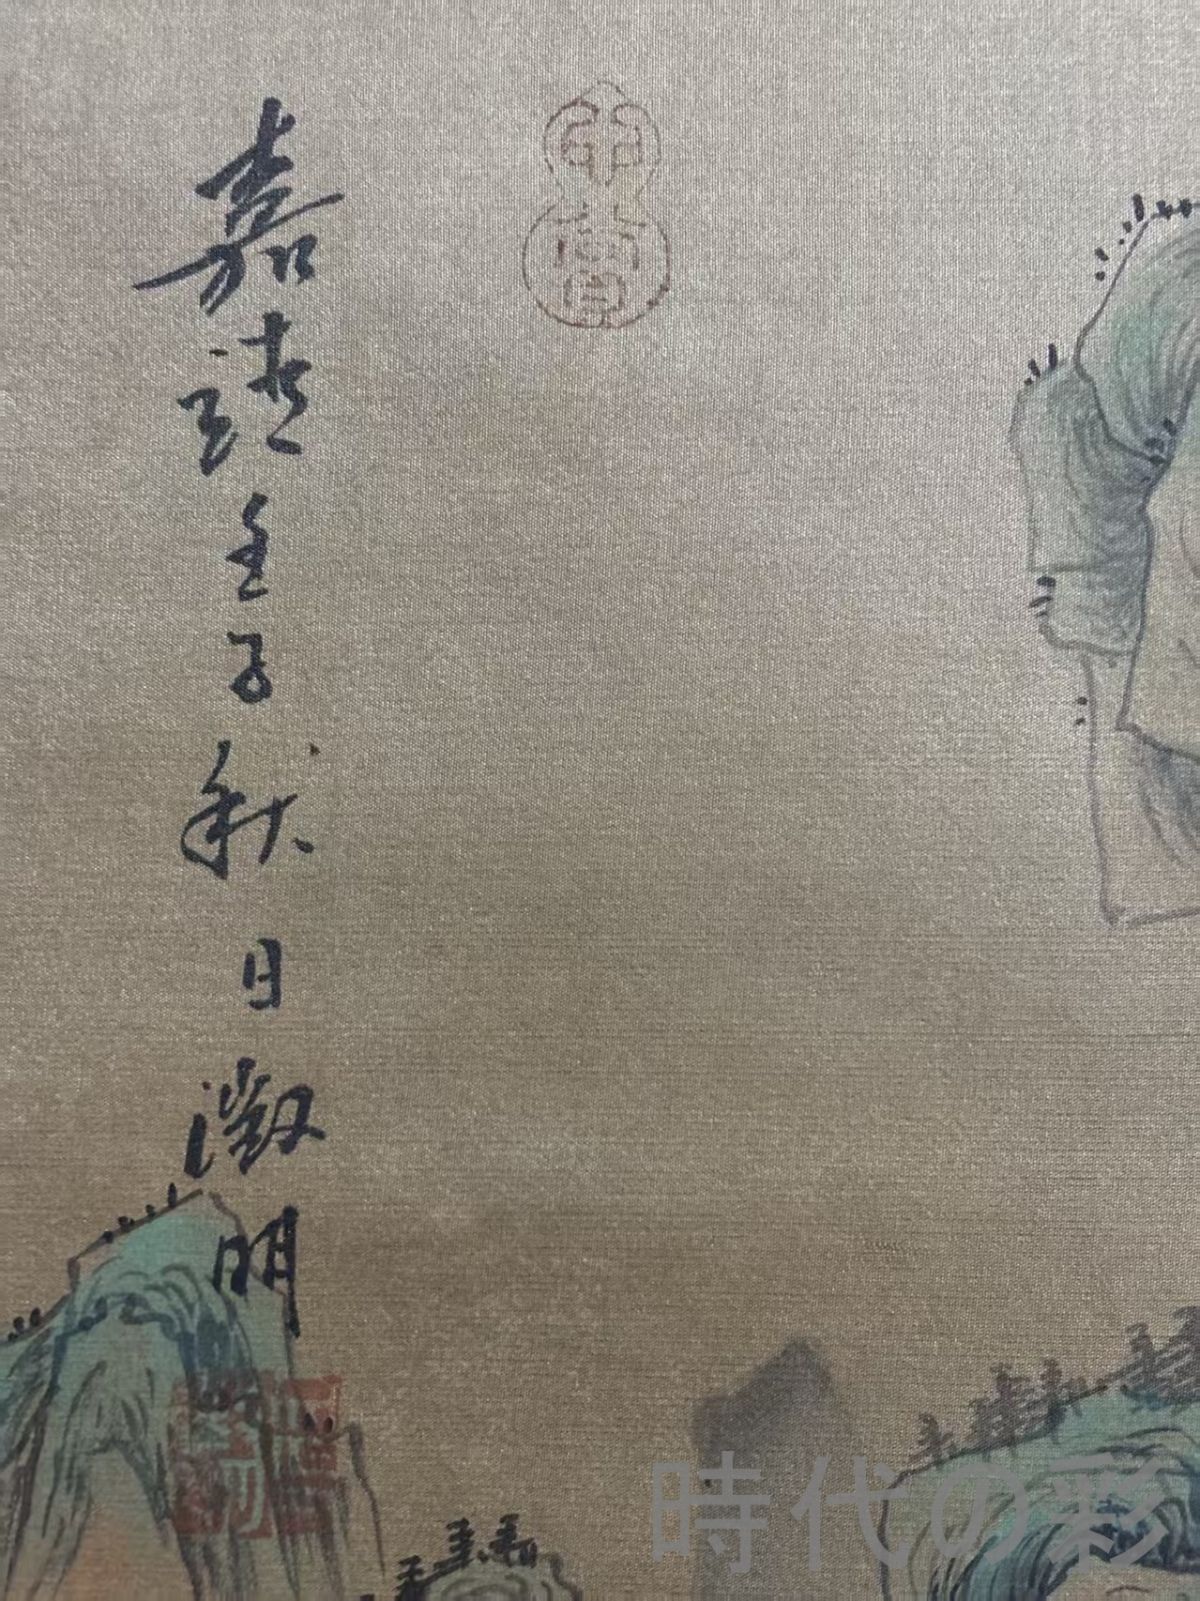 嘉靖壬子秋日徵明
時代の彩